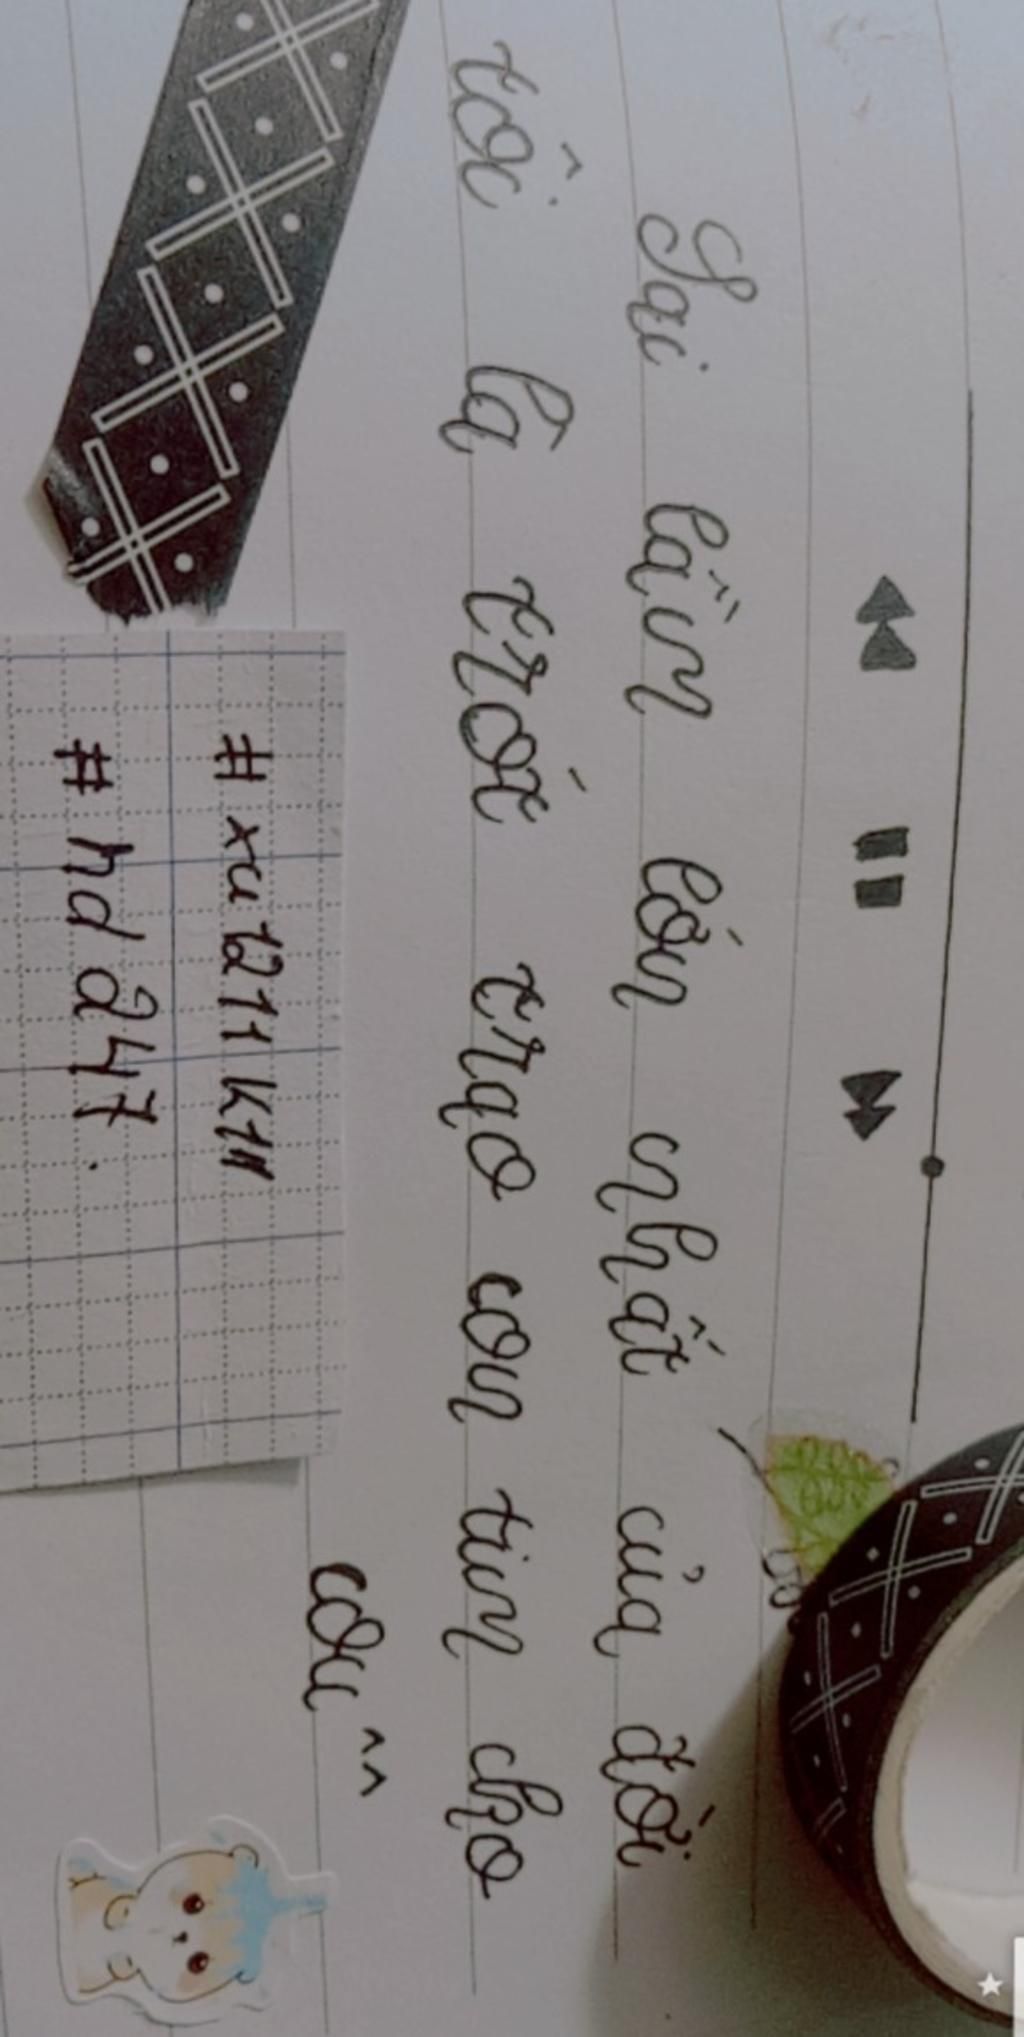 Sai lầm lớn nhất của đời
tôi là trót trao con tim cho
cậu ^^
#xu1211k11
#hd247.